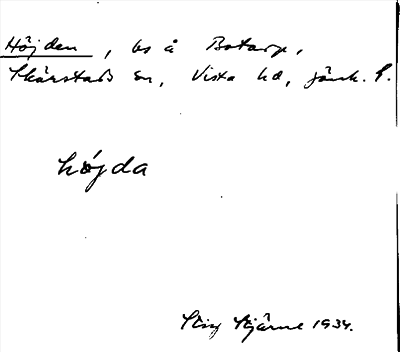 Höjden, ls å Botarp,
Skärstads sn, Vista hd, Jönk. l.
höjda
Stig Stjärne 1934.